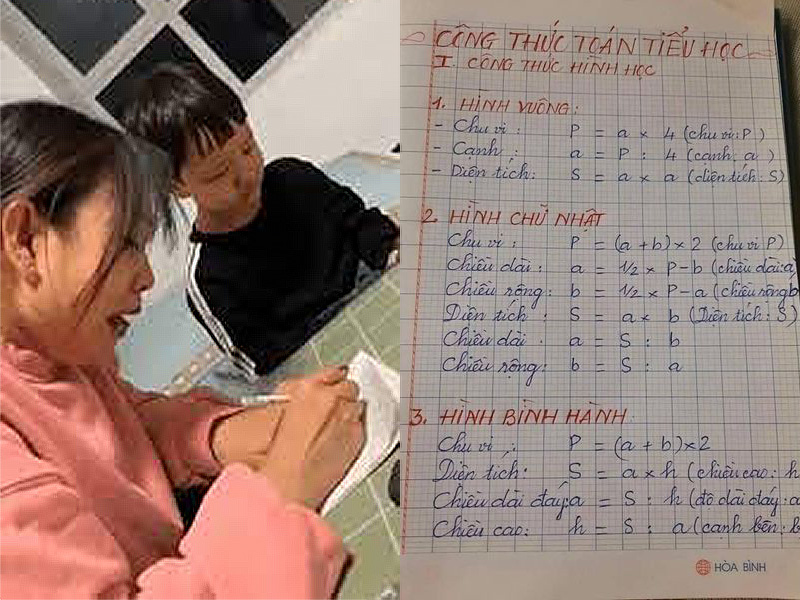 CÔNG THỨC TOÁN TIỂU HỌC
I. CÔNG THỨC HÌNH HỌC
1. HÌNH VUÔNG:
- Chu vi : P = a × 4 (chu vi: P)
- Cạnh : a = P : 4 (cạnh: a)
- Diện tích: S = a × a (diện tích: S)
2. HÌNH CHỮ NHẬT
Chu vi : P = (a + b) × 2 (chu vi P)
Chiều dài : a = 1/2 × P - b (chiều dài: a)
Chiều rộng: b = 1/2 × P - a (chiều rộng b
Diện tích : S = a × b (Diện tích: S)
Chiều dài : a = S : b
Chiều rộng: b = S : a
3. HÌNH BÌNH HÀNH
Chu vi : P = (a + b) × 2
Diện tích: S = a × h (chiều cao: h
Chiều dài đáy: a = S : h (độ dài đáy: a
Chiều cao: h = S : a (cạnh bên: b
HÒA BÌNH